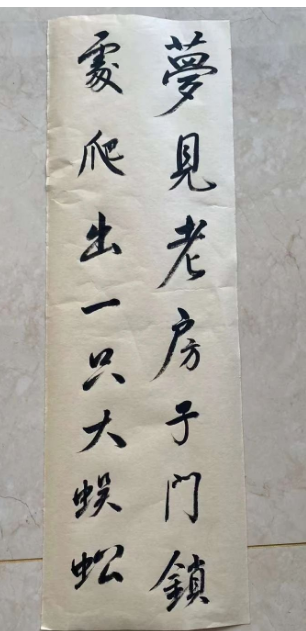 夢見老房子門鎖
處爬出一只大蜈蚣